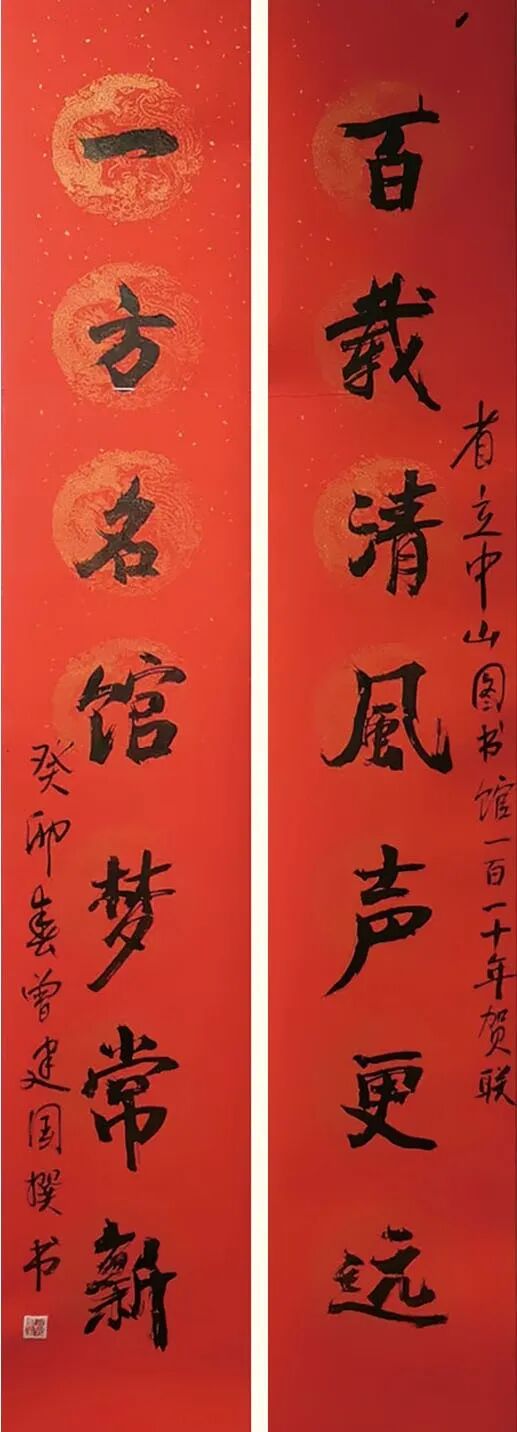 百载清風声更远
省立中山图书馆一百一十年贺联
一方名馆梦常新
癸卯春曾建国撰书